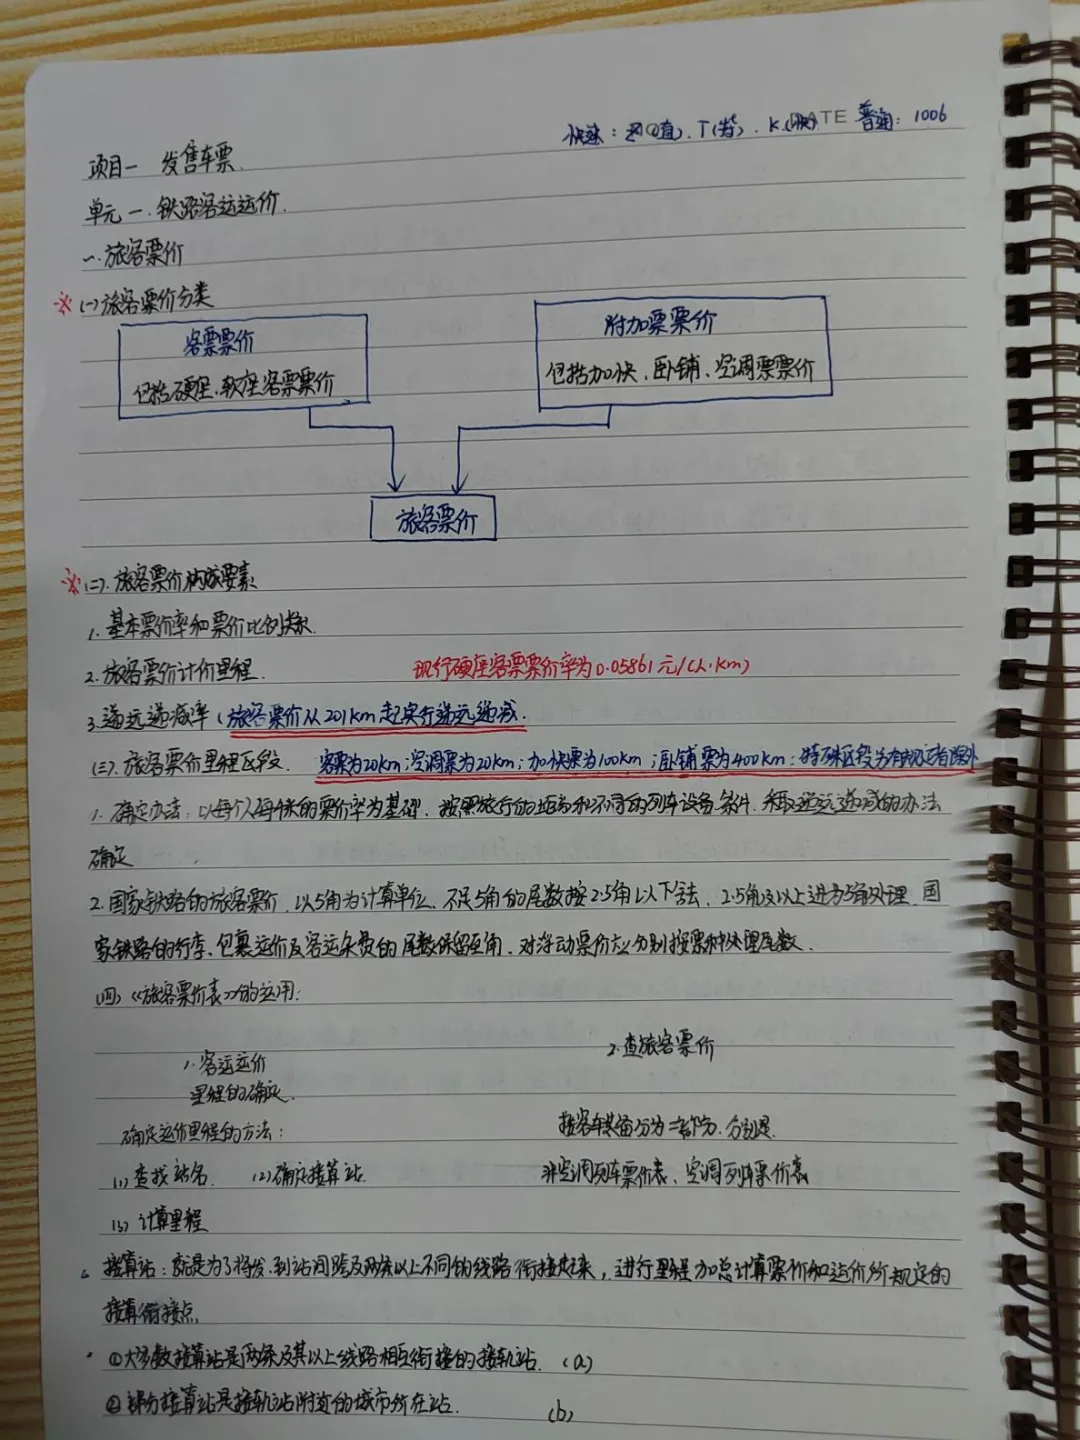 快速：Z(直).T(特).K(快) DATE 普通：1006
项目一 发售车票.
单元一.铁路客运运价.
一.旅客票价
※(一)旅客票价分类
客票票价
包括硬座.软座客票票价
附加票票价
包括加快、卧铺、空调票票价
旅客票价
※(二).旅客票价构成要素
1.基本票价率和票价比例关系.
2.旅客票价计价里程.
现行硬座客票票价率为0.05861元/(人·km)
3.递远递减率(旅客票价从201km起实行递远递减.
(三).旅客票价里程区段. 客票为20km;空调票为20km;加快票为100km;卧铺票为400km;特殊区段另有规定者除外
1.确定办法：以每个人每千米的票价率为基础.按照旅行的距离和不同的列车设备条件.采取递远递减的办法
确定
2.国家铁路的旅客票价.以5角为计算单位.不足5角的尾数按2.5角以下舍去.2.5角及以上进为5角处理.国
家铁路的行李、包裹运价及客运杂费的尾数保留至角.对浮动票价应分别按票种处理尾数.
(四)《旅客票价表》的运用：
1.客运运价
里程的确定.
2.查旅客票价
确定运价里程的方法：
按客车装备分为二部分.分别是.
(1)查找站名. (2)确定接算站.
非空调列车票价表、空调列车票价表
(3)计算里程
接算站：就是为了将发.到站间跨及两条以上不同的线路衔接起来，进行里程加总计算票价和运价所规定的
接算衔接点
①大多数接算站是两条及其以上线路相互衔接的接轨站. (a)
②部分接算站是接轨站附近的城市所在站. (b)